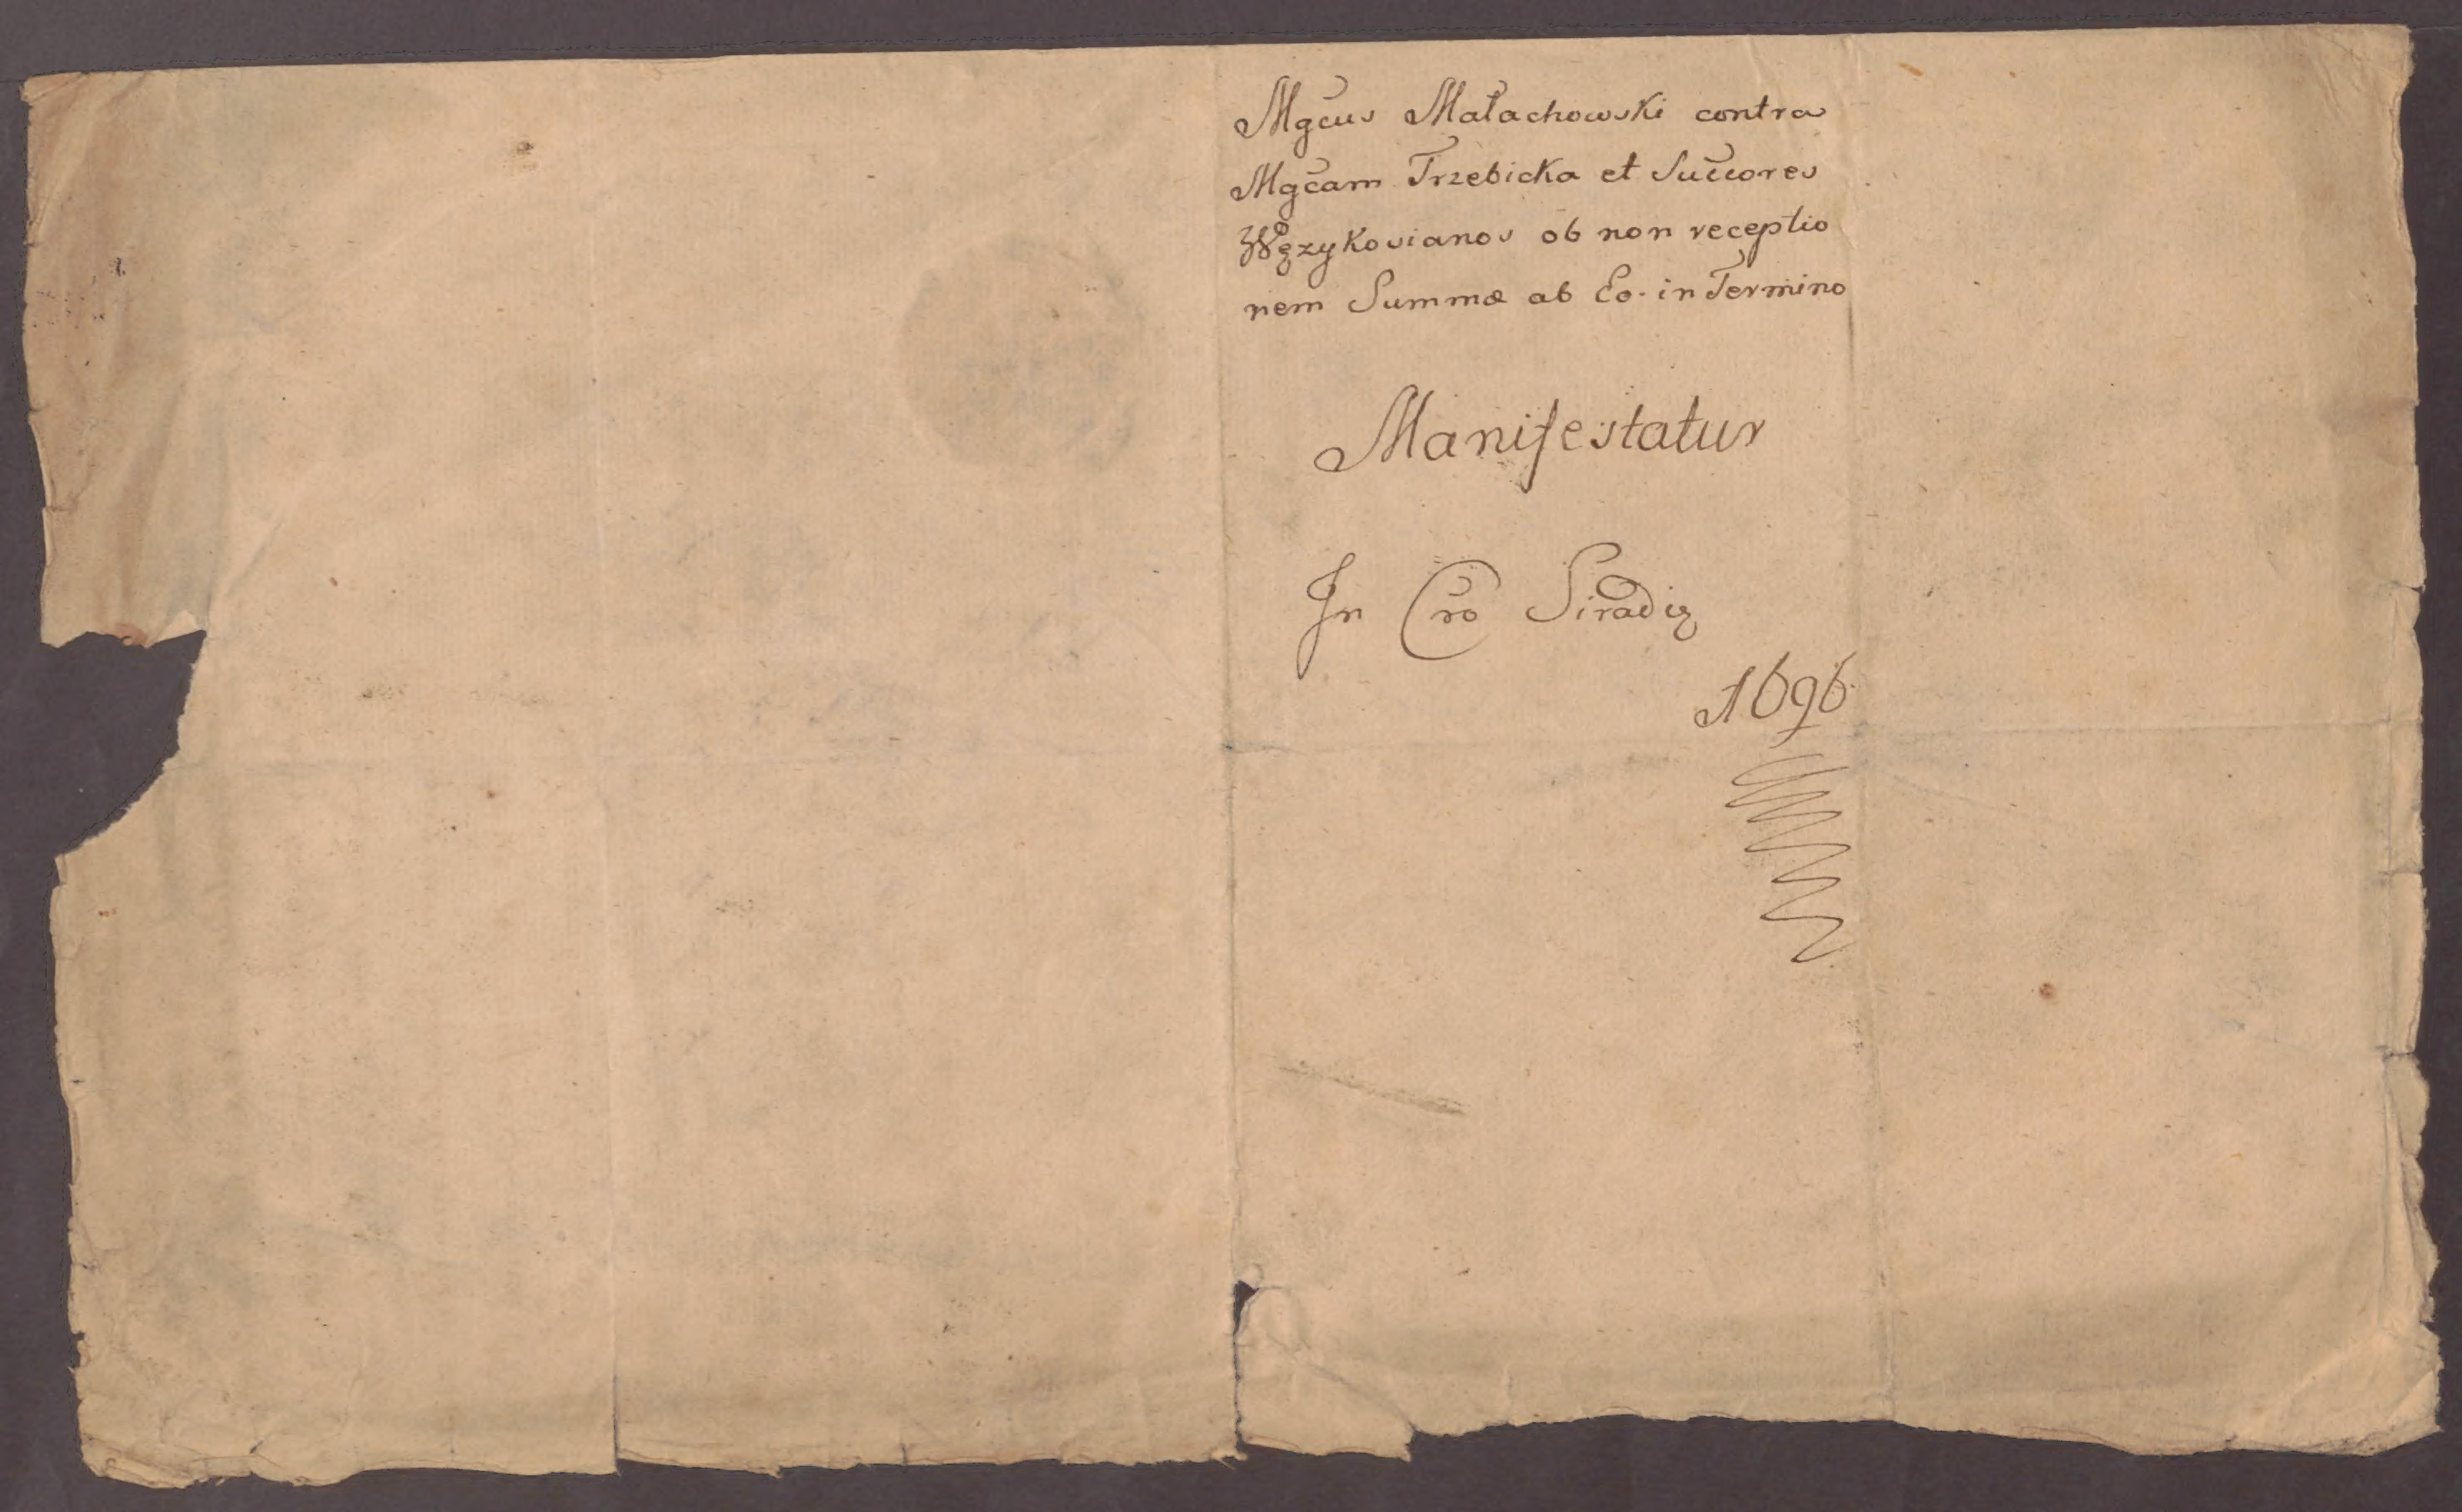 Mgcus Małachowski contra
Mgcam Trzebicka et Succores
Wężykovianos ob non receptio
nem Summæ ab Eo in Termino
Manifestatur
In Cro Siradię
1696